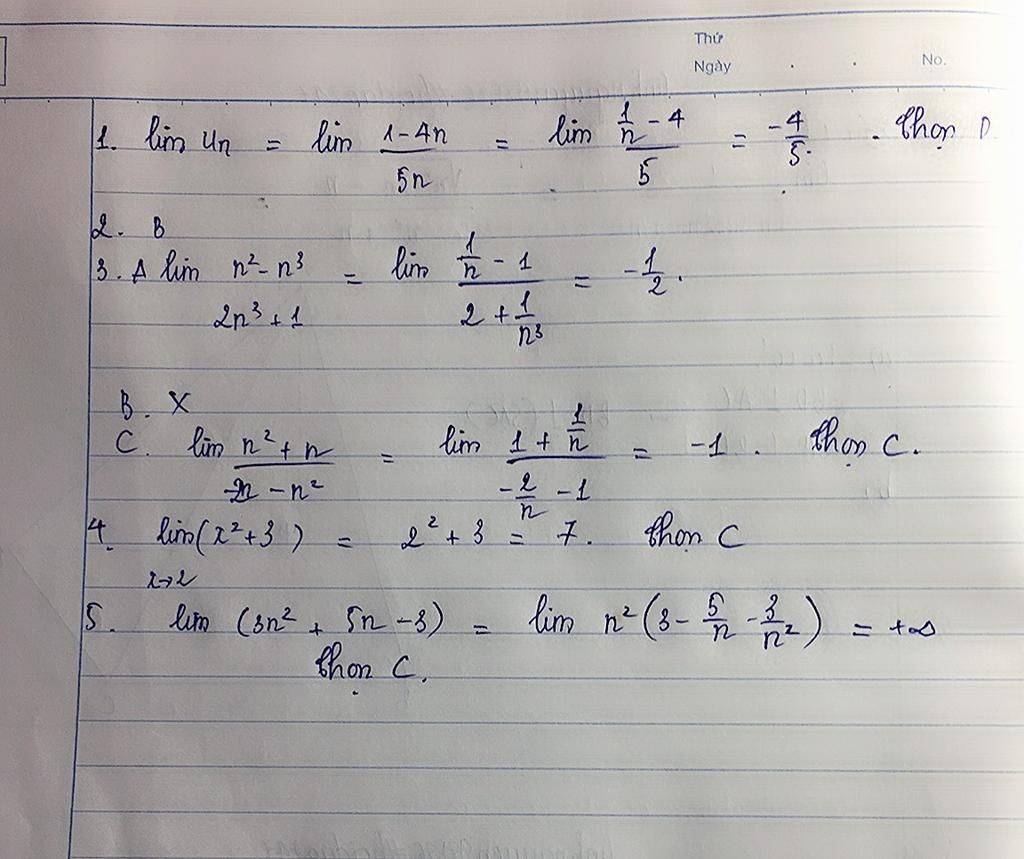 Thứ
Ngày . . No.
1. lim Un = lim (1-4n)/(5n) = lim (1/n - 4)/5 = -4/5. . Chọn D
2. B
3. A lim (n² - n³)/(2n³ + 1) = lim (1/n - 1)/(2 + 1/n³) = -1/2.
B. X
C. lim (n² + n)/(-2n - n²) = lim (1 + 1/n)/(-2/n - 1) = -1. Chọn C.
4. lim(x² + 3) = 2² + 3 = 7. Chọn C
x→2
5. lim (3n² + 5n - 3) = lim n²(3 - 5/n - 3/n²) = +∞
Chọn C.